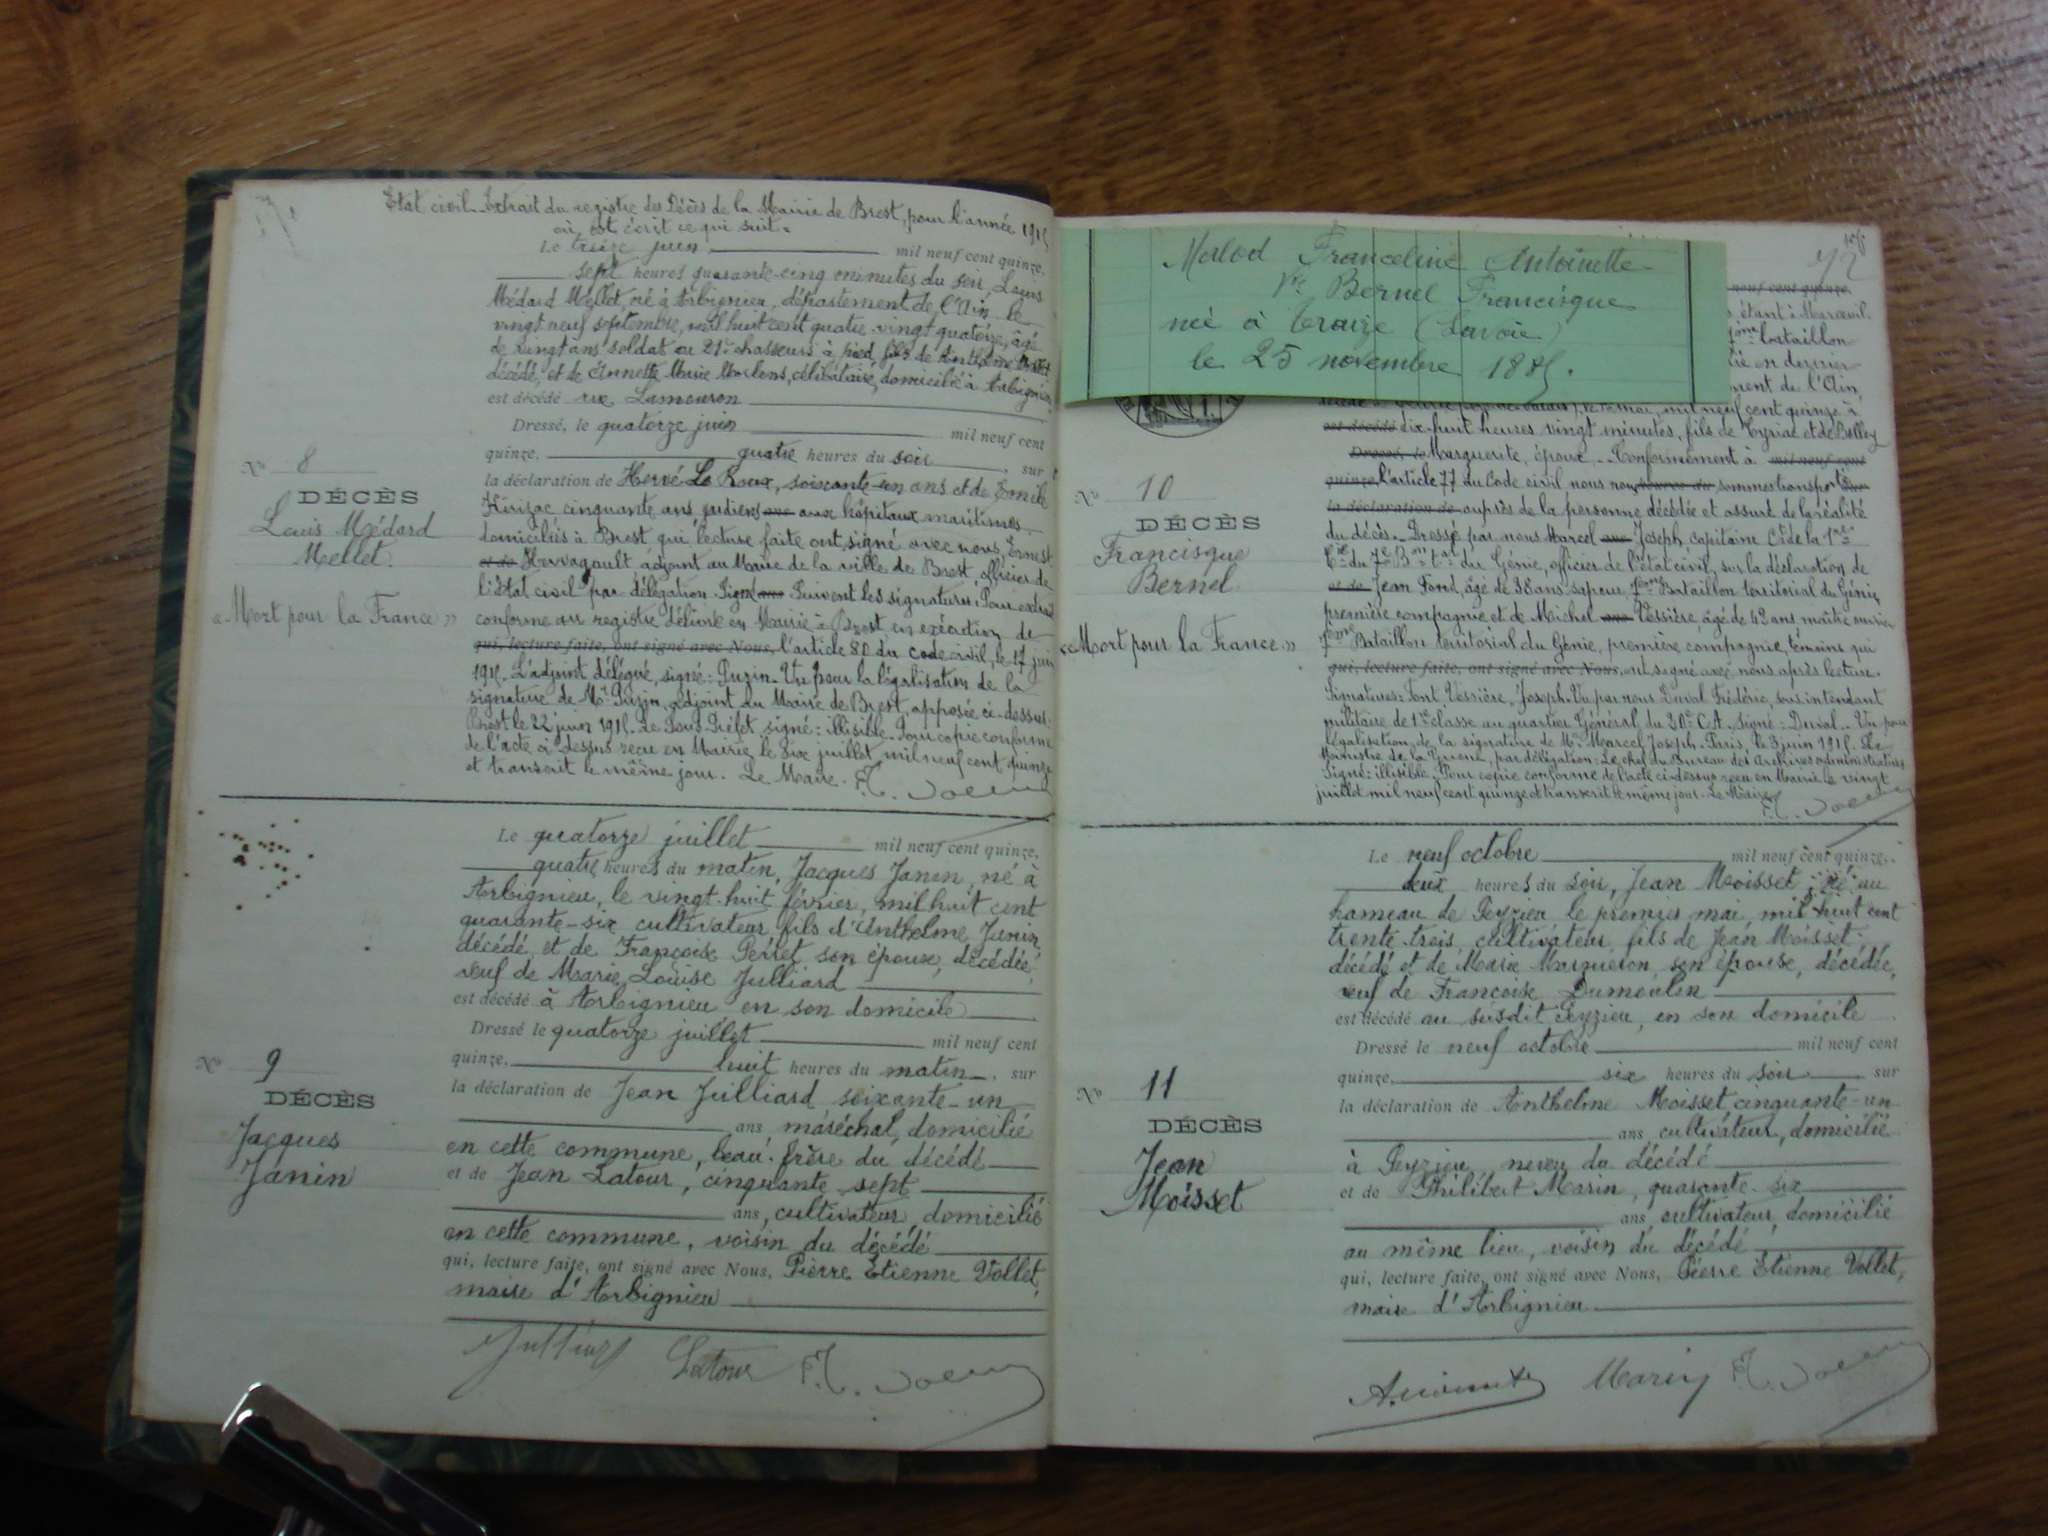 Etat civil. Extrait du registre des Décès de la Mairie de Brest, pour l'année 1915
où est écrit ce qui suit.
Le treize juin mil neuf cent quinze,
sept heures quarante-cinq minutes du soir, Louis
Médard Mellet, né à Arbignieu, département de l'Ain le
vingt neuf septembre, mil huit cent quatre-vingt quatorze, âgé
de vingt ans soldat au 21e chasseurs à pied, fils de Anthelme Mellet
décédé, et de Annette Marie célibataire, domicilié à Arbignieu
est décédé rue Lamouron
Dressé, le quatorze juin mil neuf cent
quinze, quatre heures du soir, sur
la déclaration de Hervé Le Roux, soixante-un ans et de Emile
Kirizac cinquante ans gardiens aux hôpitaux maritimes
domiciliés à Brest qui lecture faite ont signé avec nous, Ernest
et de Hervagault adjoint au Maire de la ville de Brest, officier de
l'Etat civil par délégation. Signé Suivent les signatures. Pour extrait
conforme au registre délivré en Mairie à Brest en exécution de
qui, lecture faite, ont signé avec Nous, l'article 80 du code civil, le 17 juin
1915. L'adjoint délégué, signé: Puzin. Vu pour la légalisation de la
signature de Mr Puzin, adjoint du Maire de Brest, apposée ci-dessus.
Brest le 22 juin 1915. Le Sous-Préfet signé: illisible. Pour copie conforme
de l'acte ci-dessus reçu en Mairie le six juillet mil neuf cent quinze
et transcrit le même jour. Le Maire.
No 8
DÉCÈS
Louis Médard
Mellet.
« Mort pour la France »
Le quatorze juillet mil neuf cent quinze,
quatre heures du matin, Jacques Janin, né à
Arbignieu, le vingt-huit février, mil huit cent
quarante-six cultivateur, fils d'Anthelme Janin,
décédé et de Françoise Perret son épouse, décédée,
veuf de Marie Louise Julliard
est décédé à Arbignieu en son domicile
Dressé le quatorze juillet mil neuf cent
quinze, huit heures du matin, sur
la déclaration de Jean Julliard soixante-un
ans maréchal, domicilié
en cette commune, beau-frère du décédé
et de Jean Latour, cinquante-sept
ans, cultivateur, domicilié
en cette commune, voisin du décédé
qui, lecture faite, ont signé avec Nous, Pierre Etienne Vollet,
maire d'Arbignieu
No 9
DÉCÈS
Jacques
Janin
Julliard Latour
72
Malod Franceline Antoinette
Ve Bernel Francisque
née à Traize (Savoie)
le 25 novembre 1885.
mil neuf cent quinze
étant à Maroeuil
bataillon
en dernier
de l'Ain,
mai, mil neuf cent quinze à
est décédé dix-huit heures vingt minutes, fils de Cyriac et de Bolley
Dressé, le Marguerite, époux. - Conformément à mil neuf cent
quinze l'article 77 du Code civil nous nous heures du sommes transporté sur
la déclaration de auprès de la personne décédée et assuré de la réalité
du décès. Dressé par nous Marcel ans Joseph, capitaine Ct de la 1ère
Cie du 7e Bon tal du Génie, officier de l'état civil, sur la déclaration de
et de Jean Fond, âgé de 38 ans sapeur, 7ème Bataillon territorial du Génie,
première compagnie et de Michel ans Vessière, âgé de 42 ans maître ouvrier
7ème Bataillon territorial du Génie, première compagnie, témoins qui
qui, lecture faite, ont signé avec Nous, ont signé avec nous après lecture.
Signatures: Font, Vessière, Joseph. Vu par nous Duval Frédéric, sous intendant
militaire de 1ère classe au quartier Général du 20e C.A. Signé: Duval. Vu pour
légalisation de la signature de Mr Marcel Joseph. Paris, le 3 juin 1915. Le
Ministre de la Guerre, par délégation. Le chef du Bureau des Archives administratives
Signé: illisible. Pour copie conforme de l'acte ci-dessus reçu en Mairie le vingt
juillet mil neuf cent quinze et transcrit le même jour. Le Maire
No 10
DÉCÈS
Francisque
Bernel
« Mort pour la France »
Le neuf octobre mil neuf cent quinze,
deux heures du soir, Jean Moisset, né au
hameau de Peyzieu le premier mai, mil huit cent
trente-trois, cultivateur, fils de Jean Moisset
décédé et de Marie Marqueron, son épouse, décédée,
veuf de Françoise Dumoulin
est décédé au susdit Peyzieu, en son domicile
Dressé le neuf octobre mil neuf cent
quinze, six heures du soir sur
la déclaration de Anthelme Moisset cinquante-un
ans, cultivateur, domicilié
à Peyzieu, neveu du décédé
et de Philibert Marin, quarante-six
ans, cultivateur, domicilié
au même lieu, voisin du décédé
qui, lecture faite, ont signé avec Nous, Pierre Etienne Vollet,
maire d'Arbignieu
No 11
DÉCÈS
Jean
Moisset
Marin